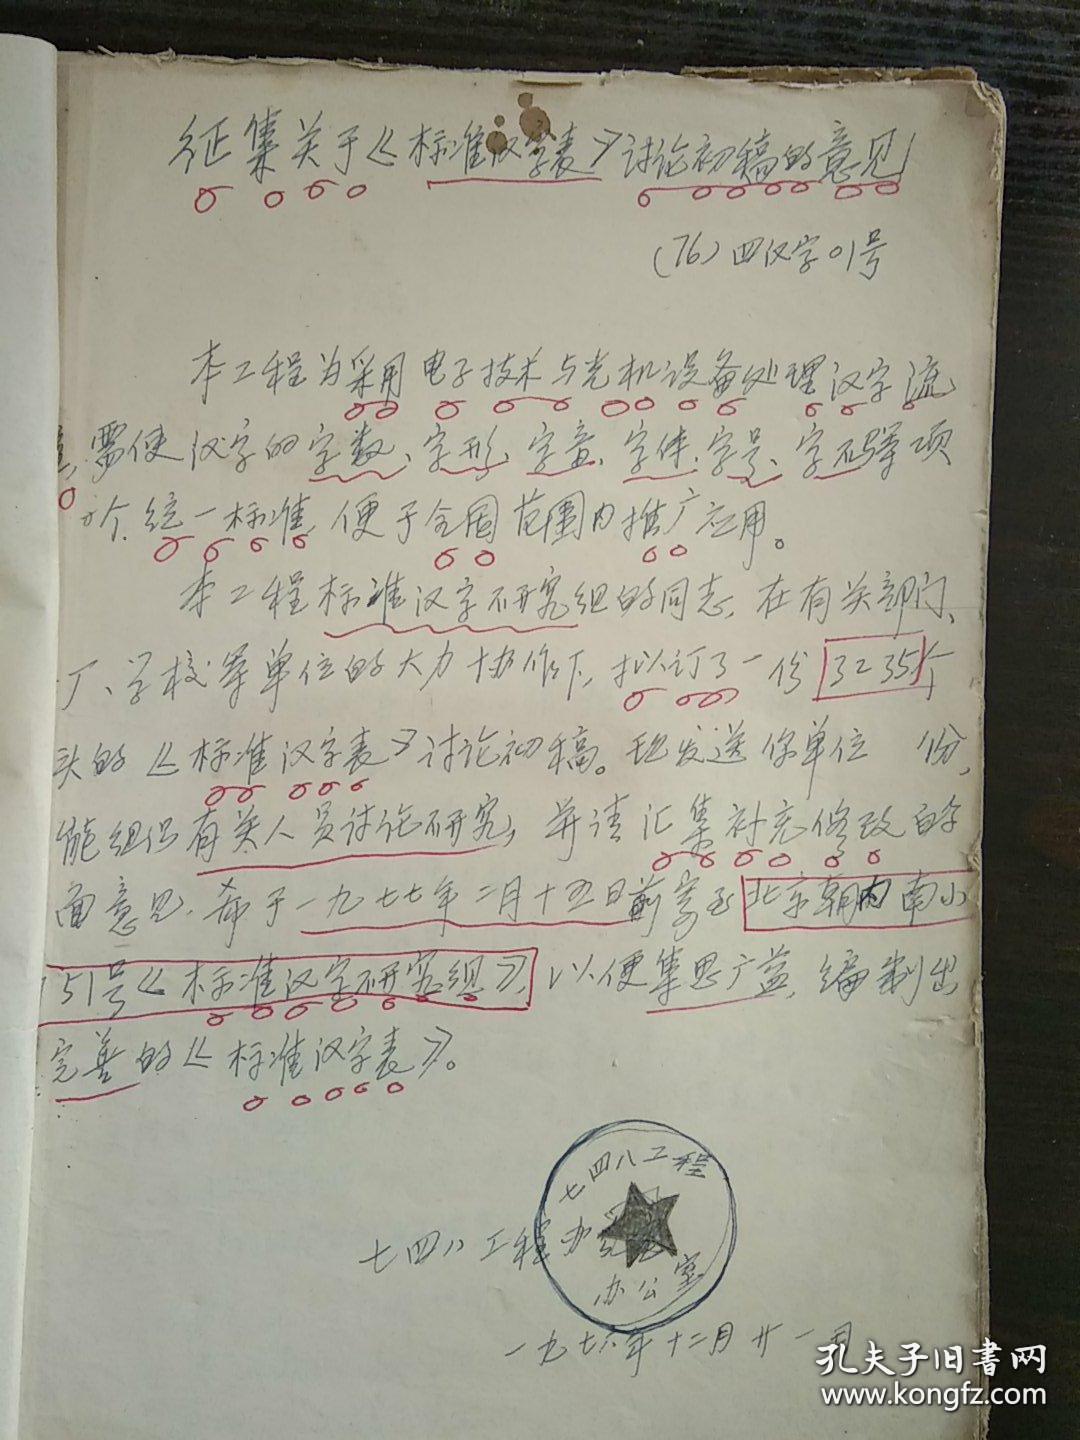 征集关于《标准汉字表》讨论初稿的意见
(76)四汉字01号
本工程为采用电子技术与光机设备处理汉字流
需使汉字的字数、字形、字音、字体、字号、字码等项
个统一标准,便于全国范围内推广应用。
本工程标准汉字研究组的同志,在有关部门、
厂、学校等单位的大力协作下,拟订了一份3235个
头的《标准汉字表》讨论初稿。现发送你单位 份,
能组织有关人员讨论研究,并请汇集补充修改的书
面意见,希于一九七七年二月十五日前寄至北京朝内南小
51号《标准汉字研究组》,以便集思广益,编制出
完善的《标准汉字表》。
七四八工程
七四八工程办公室
办公室
一九七六年十二月廿一日
孔夫子旧書网
www.kongfz.com